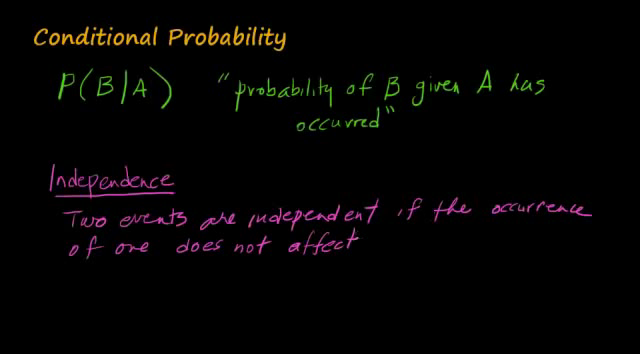 Conditional Probability
P(B/A) "probability of B given A has
occurred"
Independence
Two events are independent if the occurrence
of one does not affect